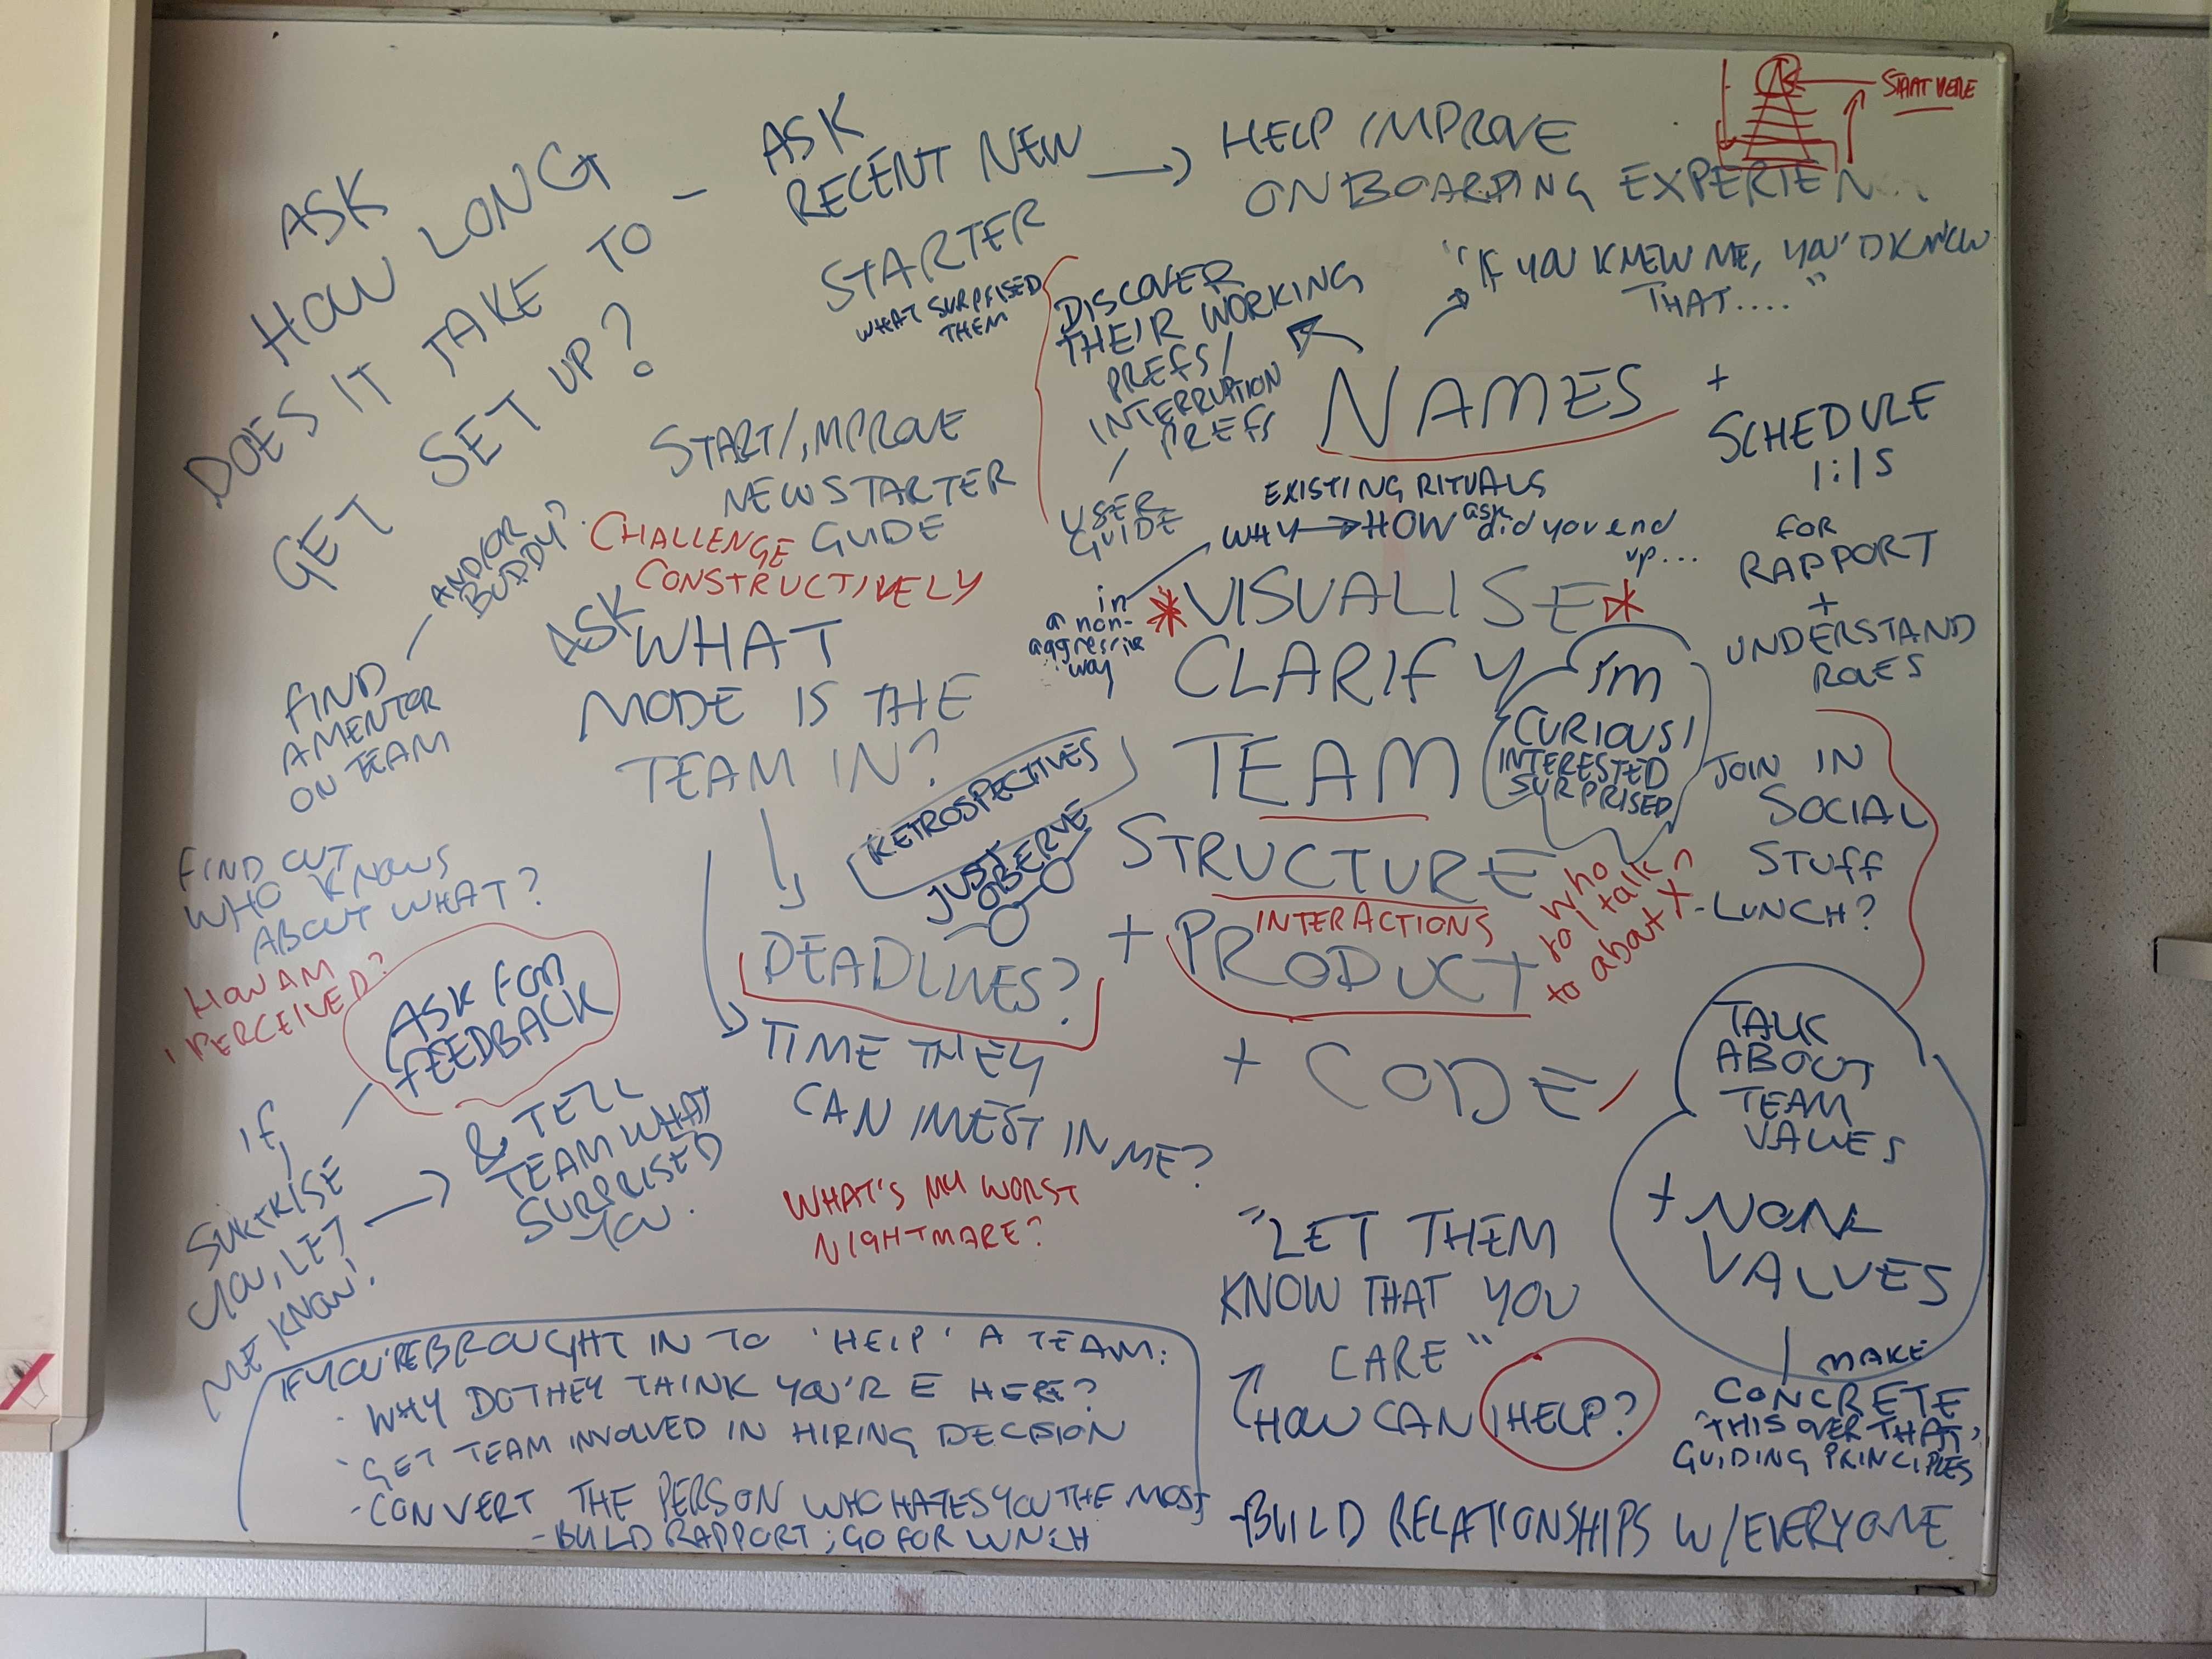 ASK
HOW LONG
DOES IT TAKE TO -
GET SET UP?
ASK
RECENT NEW →
STARTER
WHAT SURPRISED
THEM
HELP IMPROVE
ONBOARDING EXPERIEN..
START HERE
"IF YOU KNEW ME, YOU'D KNOW
THAT...."
DISCOVER
THEIR WORKING
PREFS/
INTERRUPTION
PREFS
USER
GUIDE
NAMES
+
SCHEDULE
1:1S
FOR
RAPPORT
+
UNDERSTAND
ROLES
START/IMPROVE
NEW STARTER
GUIDE
CHALLENGE
CONSTRUCTIVELY
EXISTING RITUALS
WHY → HOW ask did you end
up...
in
a non-
aggressive
way
* VISUALISE *
CLARIFY
TEAM
STRUCTURE
INTERACTIONS
+ PRODUCT
+ CODE
I'm
CURIOUS/
INTERESTED
SURPRISED
who
do I talk
to about X
JOIN IN
SOCIAL
STUFF
- LUNCH?
AND/OR
BUDDY?
FIND
A MENTOR
ON TEAM
ASK WHAT
MODE IS THE
TEAM IN?
RETROSPECTIVES
JUST
OBERVE
DEADLINES?
TIME THEY
CAN INVEST IN ME?
WHAT'S MY WORST
NIGHTMARE?
FIND OUT
WHO KNOWS
ABOUT WHAT?
HOW AM
I PERCEIVED?
ASK FOR
FEEDBACK
IF I
SURPRISE
YOU, LET
ME KNOW!
& TELL
TEAM WHAT
SURPRISED
YOU.
TALK
ABOUT
TEAM
VALUES
+ NONE
VALUES
MAKE
CONCRETE
"THIS OVER THAT"
GUIDING PRINCIPLES
"LET THEM
KNOW THAT YOU
CARE"
HOW CAN I HELP?
- BUILD RELATIONSHIPS W/EVERYONE
IF YOU'RE BROUGHT IN TO 'HELP' A TEAM:
- WHY DO THEY THINK YOU'RE HERE?
- GET TEAM INVOLVED IN HIRING DECISION
- CONVERT THE PERSON WHO HATES YOU THE MOST
- BUILD RAPPORT; GO FOR LUNCH